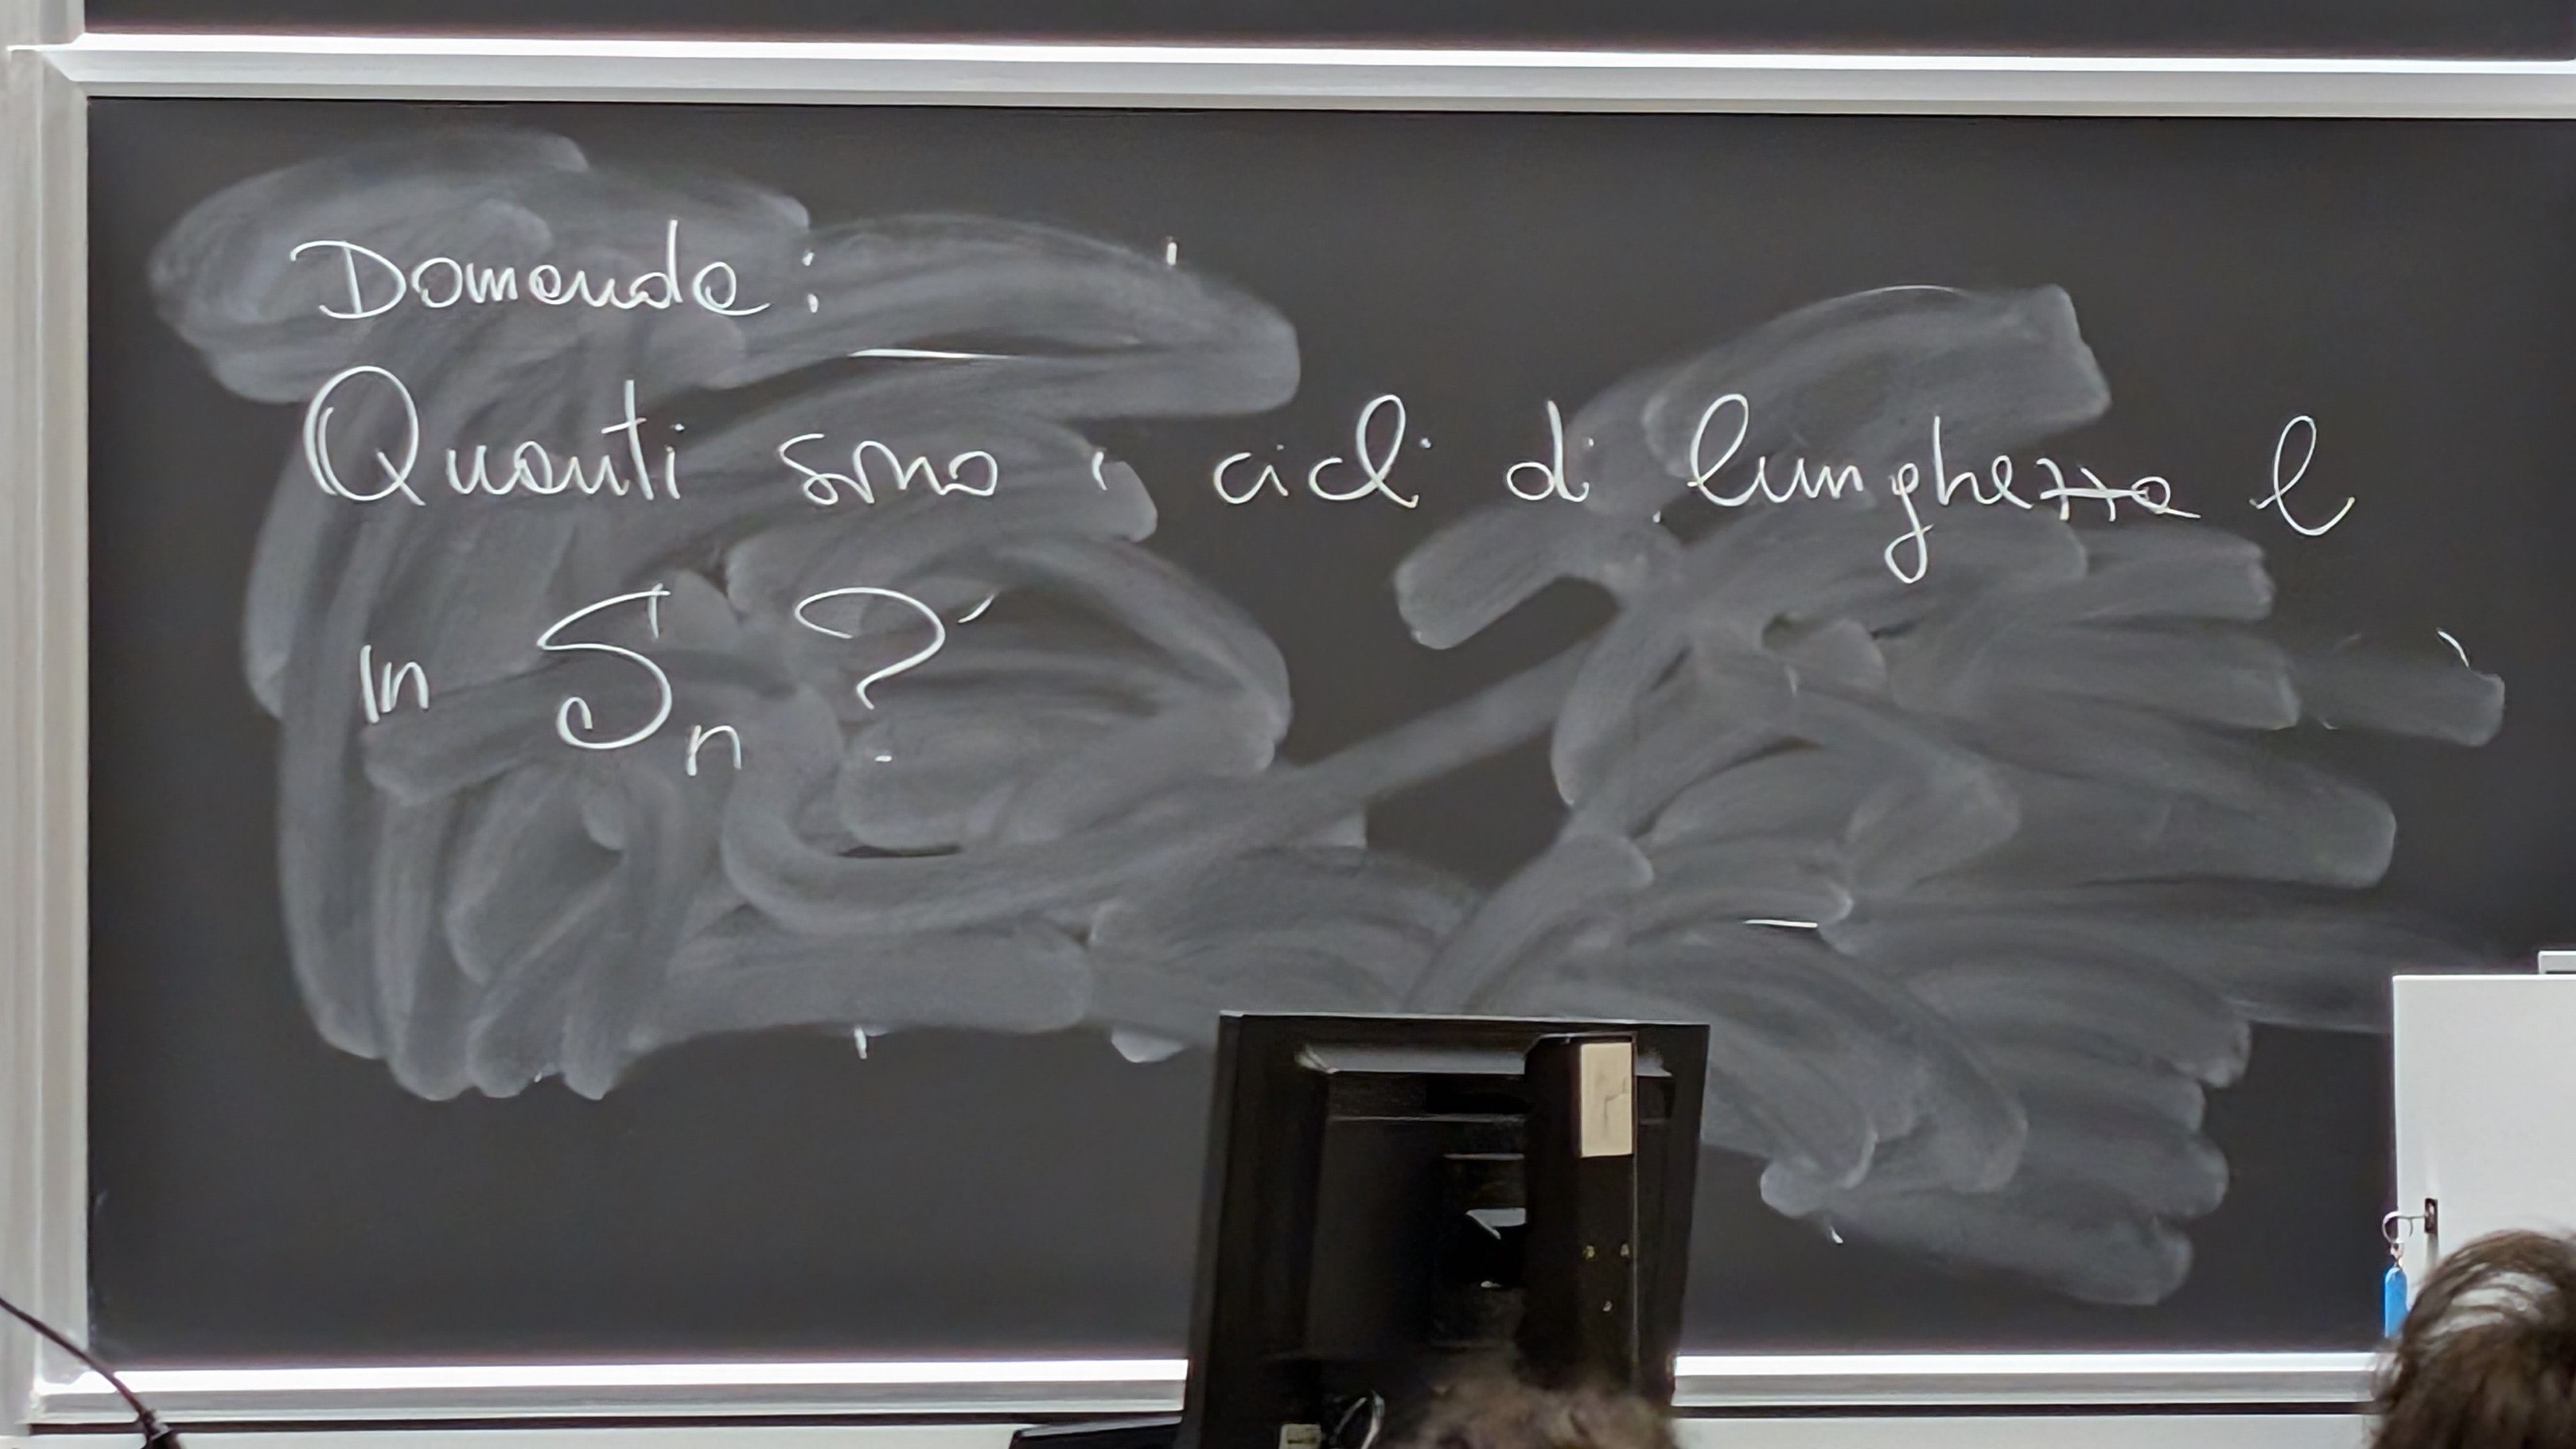 Domanda:
Quanti sono i cicli di lunghezza l
in Sn?